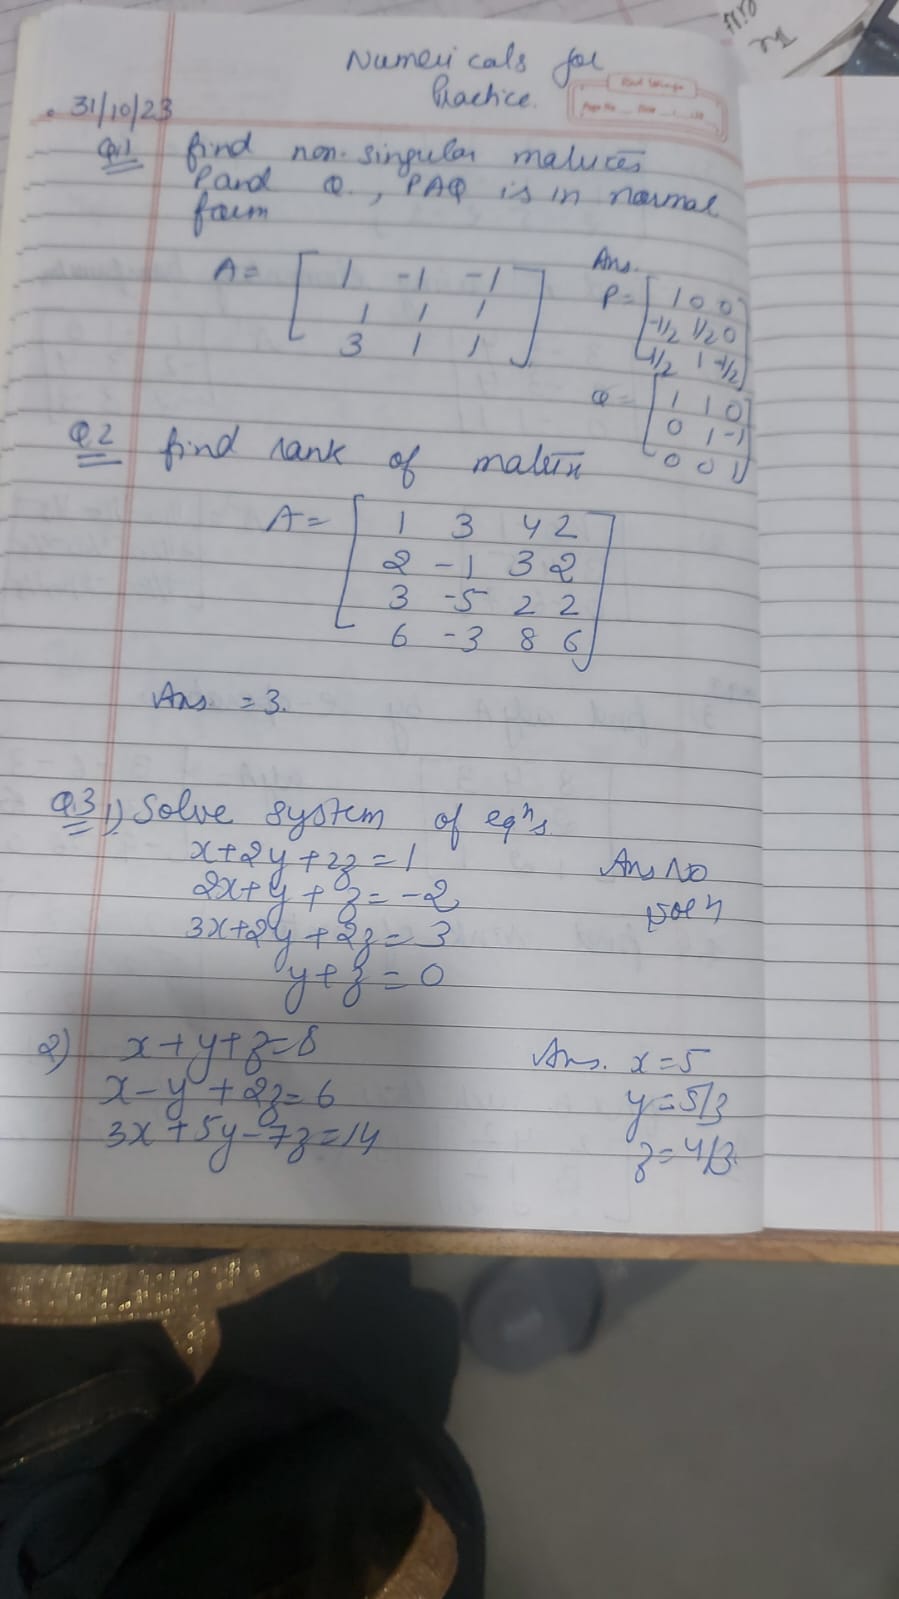 Numericals for
Practice.
31/10/23
Q.1 find non-singular matrices
P and Q., PAQ is in normal
form
A = [ 1 -1 -1
1 1 1
3 1 1 ]
Ans.
P = [ 1 0 0
-1/2 1/2 0
1/2 1 -1/2 ]
Q = [ 1 1 0
0 1 -1
0 0 1 ]
Q2 find rank of matrix
A = [ 1 3 4 2
2 -1 3 2
3 -5 2 2
6 -3 8 6 ]
Ans. = 3.
Q3 1) Solve system of eqns.
x+2y+2z=1
2x+y+z=-2
3x+2y+2z=3
y+z=0
Ans No
soln
2) x+y+z=8
x-y+2z=6
3x+5y-7z=14
Ans. x=5
y=5/3
z=4/3